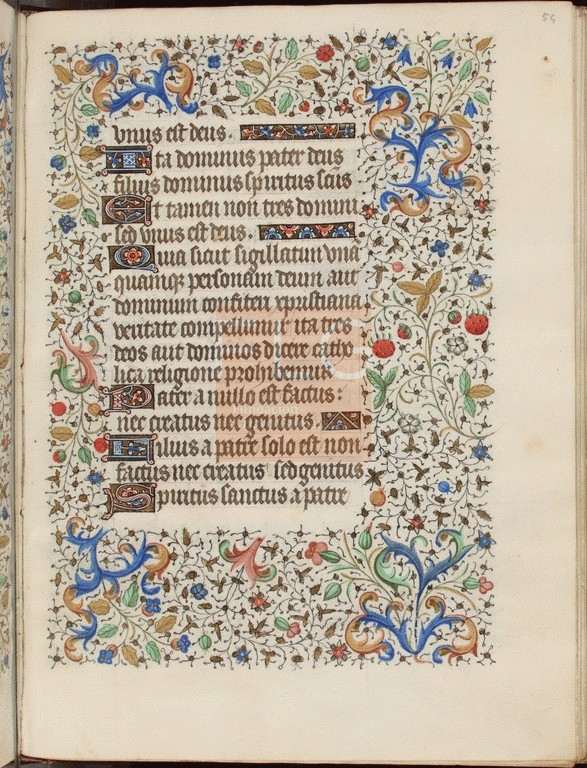 54
vnus est deus.
Ita dominus pater deus
filius dominus spiritus scũs
Et tamen non tres domini
sed vnus est deus.
Quia sicut sigillatim vnã
quamq; personam deum aut
dominum confiteri xpristiana
veritate compellimur ita tres
deos aut dominos dicere catho
lica religione prohibemur
Pater a nullo est factus:
nec creatus nec genitus.
Filius a patre solo est non
factus nec creatus sed genitus
Spiritus sanctus a patre